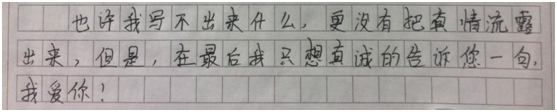 也许我写不出来什么，更没有把真情流露
出来，但是，在最后我只想真诚的告诉您一句，
我爱你！